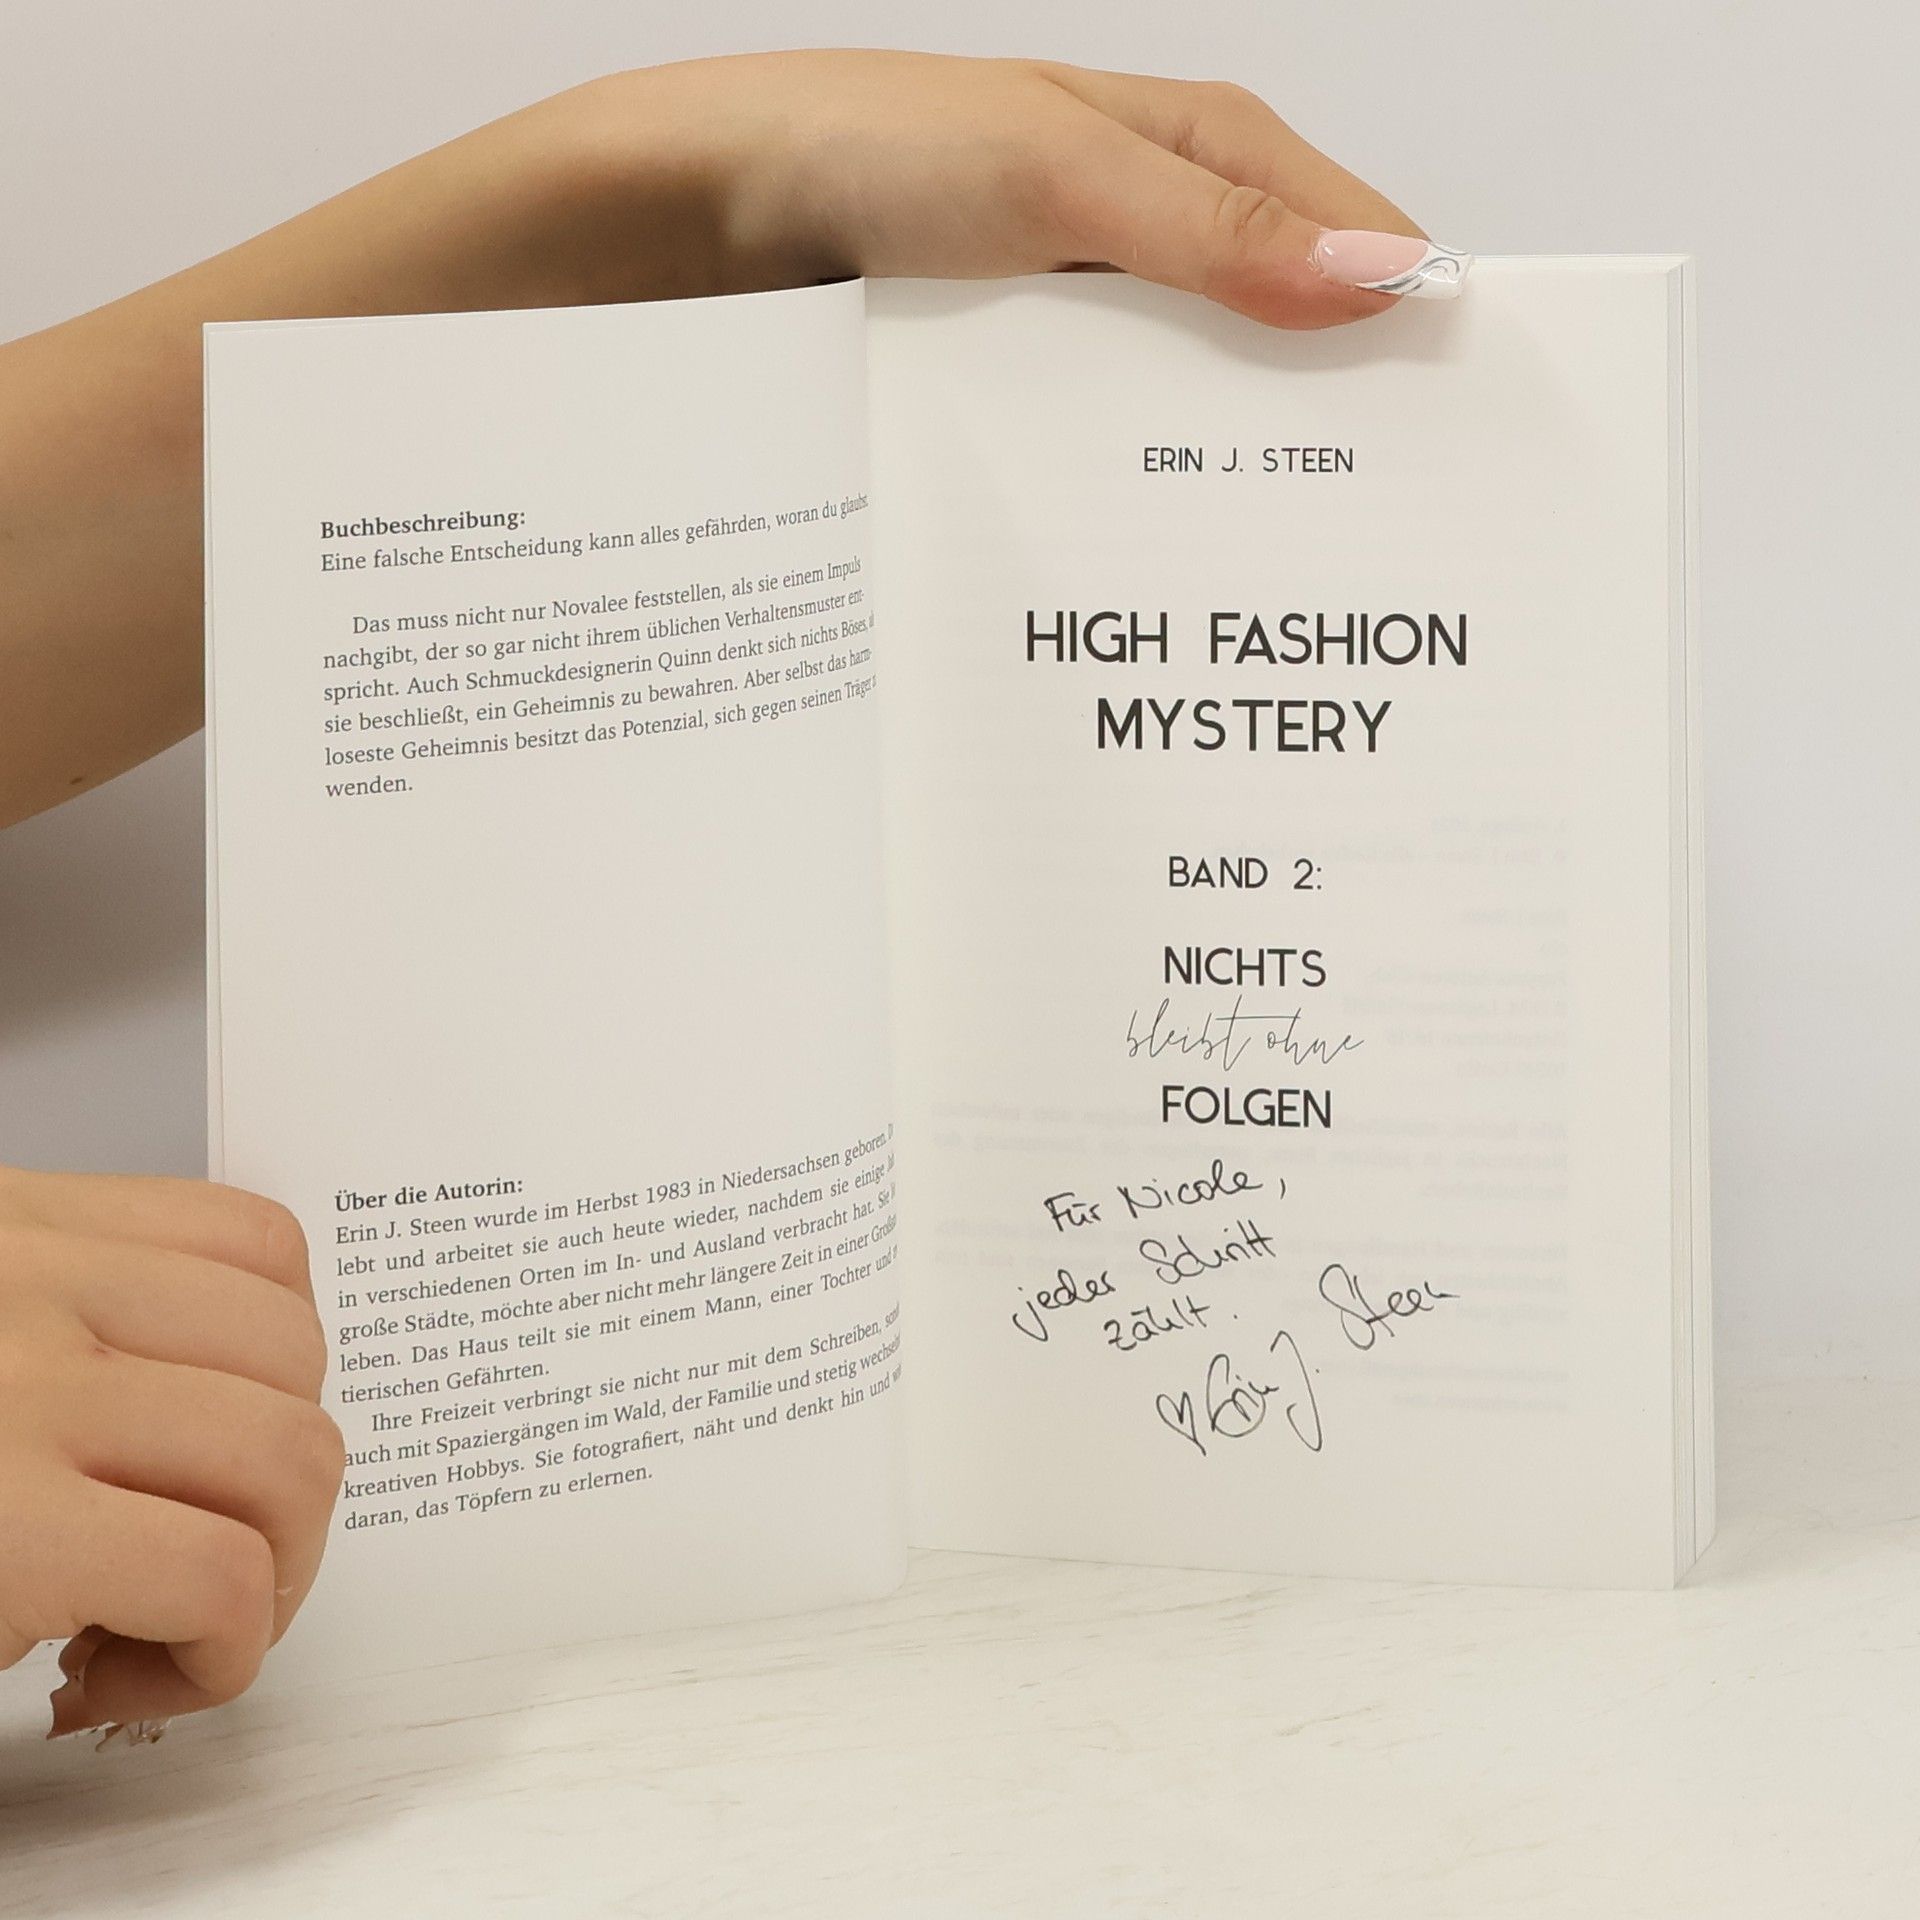 Buchbeschreibung:
Eine falsche Entscheidung kann alles gefährden, woran du glaubst.
Das muss nicht nur Novalee feststellen, als sie einem Impuls
nachgibt, der so gar nicht ihrem üblichen Verhaltensmuster ent-
spricht. Auch Schmuckdesignerin Quinn denkt sich nichts Böses,
sie beschließt, ein Geheimnis zu bewahren. Aber selbst das harm-
loseste Geheimnis besitzt das Potenzial, sich gegen seinen Träger
wenden.
Über die Autorin:
Erin J. Steen wurde im Herbst 1983 in Niedersachsen geboren.
lebt und arbeitet sie auch heute wieder, nachdem sie einige
in verschiedenen Orten im In- und Ausland verbracht hat. Sie
große Städte, möchte aber nicht mehr längere Zeit in einer
leben. Das Haus teilt sie mit einem Mann, einer Tochter und
tierischen Gefährten.
Ihre Freizeit verbringt sie nicht nur mit dem Schreiben,
auch mit Spaziergängen im Wald, der Familie und stetig
kreativen Hobbys. Sie fotografiert, näht und denkt hin und
daran, das Töpfern zu erlernen.
ERIN J. STEEN
HIGH FASHION
MYSTERY
BAND 2:
NICHTS
bleibt ohne
FOLGEN
Für Nicole,
jeder Schritt
zählt.
Erin J. Steen